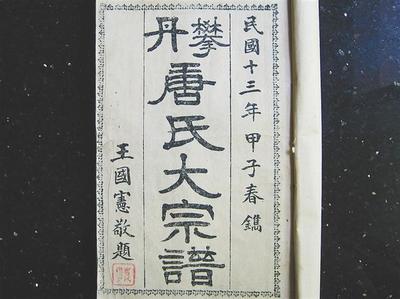 民國十三年甲子春鐫
攀丹
唐氏大宗譜
王國憲敬題